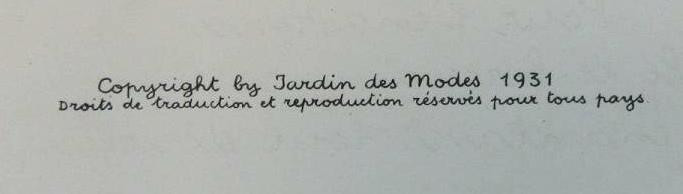 Copyright by Jardin des Modes 1931
Droits de traduction et reproduction réservés pour tous pays.